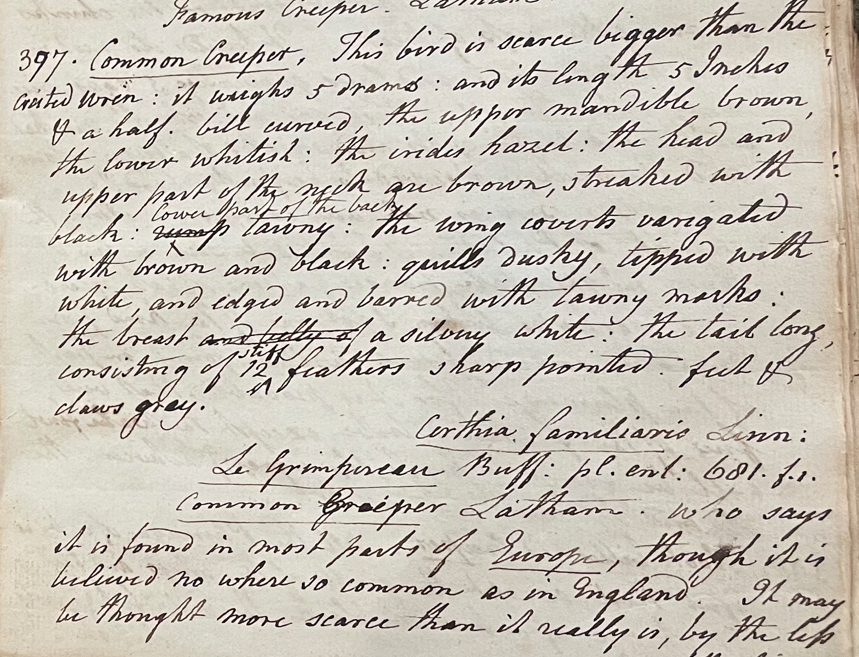 Famous Creeper. Latham
397. Common Creeper. This bird is scarce bigger than the
crested wren: it weighs 5 drams: and its length 5 Inches
& a half. bill curved, the upper mandible brown,
the lower whitish: the irides hazel: the head and
upper part of the neck are brown, streaked with
lower part of the back
black: rump tawny: the wing coverts varigated
with brown and black: quills dusky, tipped with
white, and edged and barred with tawny marks:
the breast and belly of a silvery white: the tail long,
stiff
consisting of 12 feathers sharp pointed: feet &
claws gray.
Certhia familiaris Linn:
Le Grimpereau Buff: pl. enl: 681. f.1.
Common Creeper Latham. who says
it is found in most parts of Europe, though it is
believed no where so common as in England. It may
be thought more scarce than it really is, by the less